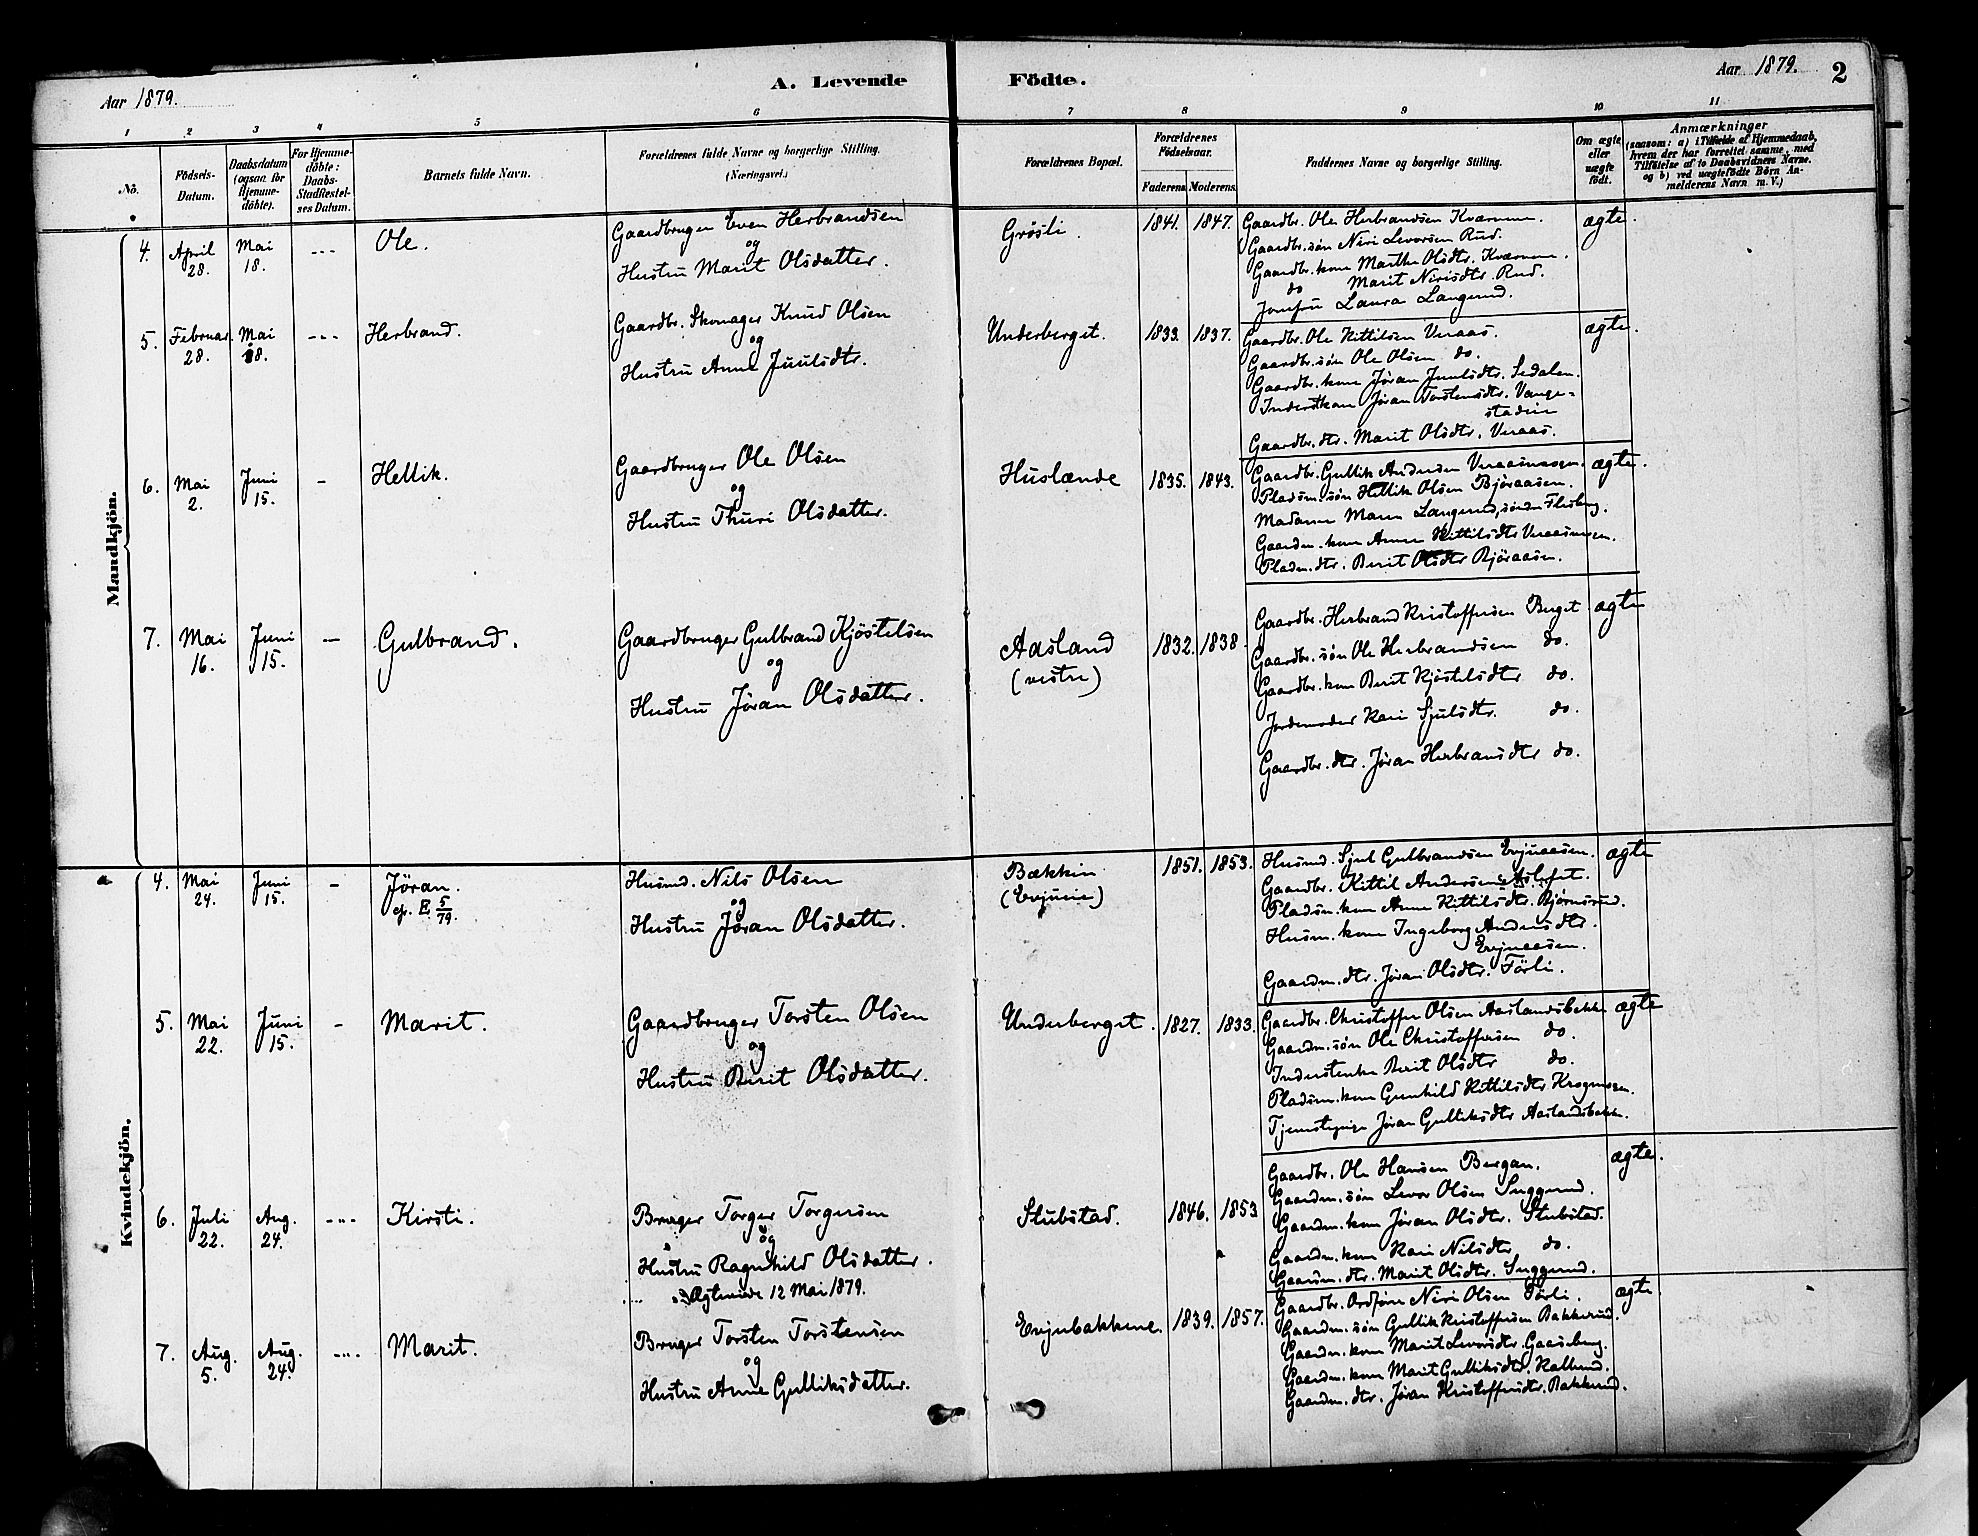 Aar 1879.
A. Levende Födte.
Aar 1879. 2
1 2 3 4 5 6 7 8 9 10 11
No.
Födsels-Datum.
Daabsdatum (ogsaa for Hjemme-döbte).
For Hjemme-döbte: Daabs-Stadfestelses Datum.
Barnets fulde Navn.
Forældrenes fulde Navne og borgerlige Stilling.
(Næringsvei.)
Forældrenes Bopæl.
Forældrenes Födselsaar.
Faderens. Moderens.
Faddernes Navne og borgerlige Stilling.
Om ægte eller uægte født.
Anmærkninger
(saasom: a) i Tilfælde af Hjemmedaab,
hvem der har forrettet samme, med
Tilføielse af to Daabsvidners Navne.
og b) ved uægtefödte Börn An-
melderens Navn m. V.)
Mandkjön.
4. April 28. Mai 18. --- Ole.
Gaardbruger Even Herbrandsen
og
Hustru Marit Olsdatter.
Grösli. 1841. 1847.
Gaardbr. Ole Herbrandsen Kværnme.
Gaardbr. søn Niri Levorsen Rud.
Gaardbr. kone Marthe Olsdtr. Kværnme.
do Marit Nirisdtr. Rud.
Jomfru Laura Langerud.
ægte.
5. Februar 28. Mai 18. --- Herbrand.
Gaardbr. Skomager Knud Olsen
og
Hustru Anne Juulsdtr.
Underberget. 1833. 1837.
Gaardbr. Ole Kittilsen Veraas.
Gaardbr. søn Ole Olsen do.
Gaardbr. kone Jöran Juulsdtr. Sedalen.
Inderstkone Jöran Torstensdtr. Vange-
stadeie
Gaardbr. dtr. Marit Olsdtr. Veraas.
ægte.
6. Mai 2. Juni 15. - Hellik.
Gaardbruger Ole Olsen
og
Hustru Thuri Olsdatter.
Huslænde 1835. 1843.
Gaardbr. Gullik Andersen Veraasmogen.
Pladsm. søn Hellik Olsen Björaasen.
Madame Maren Langerud, søndre Flesberg.
Gaardm. kone Anne Kittilsdtr Veraasmogen.
Pladsm. dtr. Berit Olsdtr Björaasen.
ægte.
7. Mai 16. Juni 15. - Gulbrand.
Gaardbruger Gulbrand Kjöstelsen
og
Hustru Jöran Olsdatter.
Aasland
(vestre)
1832. 1838.
Gaardbr. Herbrand Kristoffersen Berget
Gaardbr. søn Ole Herbrandsen do.
Gaardbr. kone Berit Kjöstelsdtr do.
Jordemoder Kari Sjulsdtr. do.
Gaardbr. dtr. Jöran Herbransdtr do.
ægte
Kvindekjön.
4. Mai 24. Juni 15. - Jöran.
cfr. E 5/79.
Husmd. Nils Olsen
og
Hustru Jöran Olsdatter.
Bækkin
(Evjueie)
1851. 1853.
Husmd. Sjul Gulbrandsen Evjueaasen.
Gaardbr. Kittil Andersen
Pladsm. kone Anne Kittilsdtr. Bjørnsrud.
Husm. kone Ingeborg Andersdtr.
Evjueaasen.
Gaardm. dtr. Jöran Olsdtr. Förli.
ægte
5. Mai 22. Juni 15. - Marit.
Gaardbruger Torsten Olsen
og
Hustru Berit Olsdatter.
Underberget. 1827. 1833.
Gaardbr. Christoffer Olsen Aaslandsbekk.
Gaardm. søn Ole Christoffersen do.
Inderstenke Berit Olsdtr do.
Pladsm. kone Gunhild Kittilsdtr Krogmogen.
Tjenestepige Jöran Gulliksdtr Aaslandsbekk.
ægte
6. Juli 22. Aug. 24. --- Kirsti.
Bruger Torger Torgersen
og
Hustru Ragnhild Olsdatter.
Ægteviede 12 Mai 1879.
Stubstad. 1846. 1853
Gaardbr. Ole Hansen Bergan.
Gaardm. søn Levor Olsen Suggerud.
Gaardm. kone Jöran Olsdtr. Stubstad.
Gaardm. kone Kari Nilsdtr do.
Gaardm. dtr. Marit Olsdtr. Suggerud.
ægte.
7. Aug. 5. Aug. 24. --- Marit.
Bruger Torsten Torstensen
og
Hustru Anne Gulliksdatter.
Evjubakkene. 1839. 1857.
Gaardbr. Ordförer Niri Olsen Förli.
Gaardm. søn Gullik Kristoffersen Bakkerud.
Gaardm. kone Marit Levorsdtr. Gaasberg.
Gaardm. kone Marit Gulliksdtr. Kallerud.
Gaardm. dtr. Jöran Kristoffersdtr. Bakkerud.
ægte.